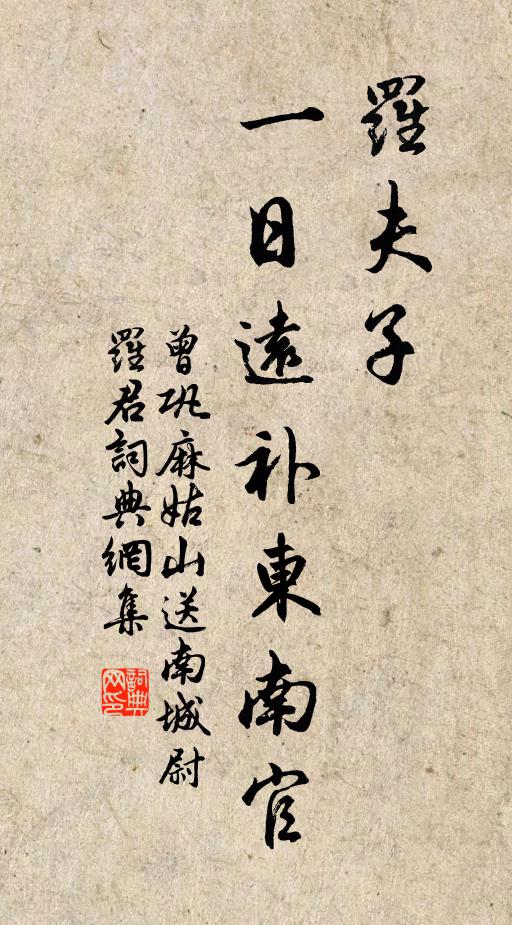 羅夫子
一日遠补東南官
曾巩麻姑山送南城尉
羅君詞典網集
詞典
网印